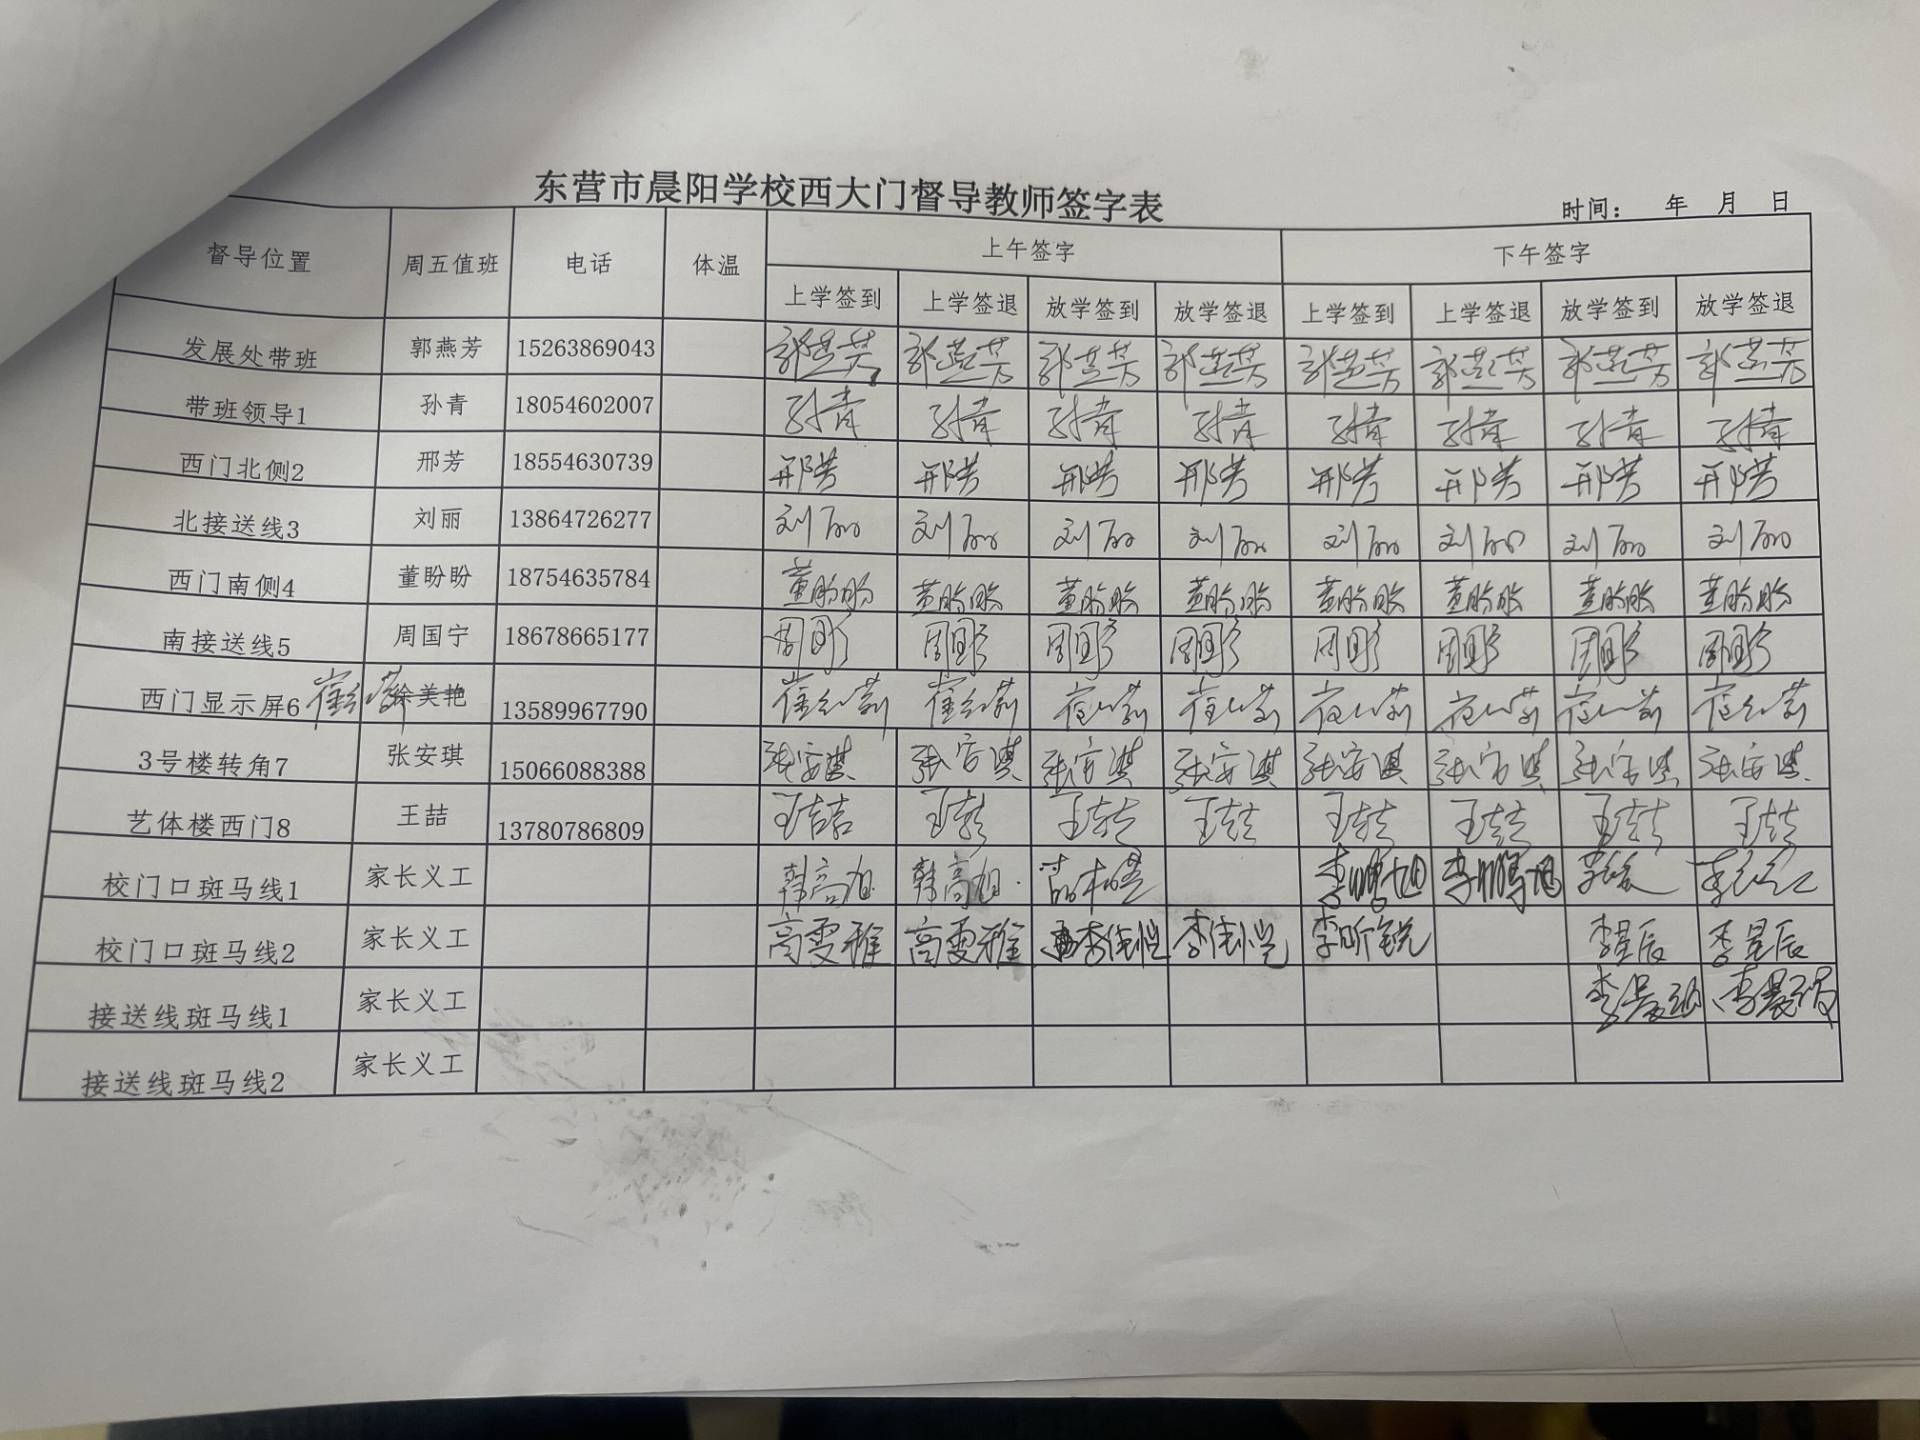 东营市晨阳学校西大门督导教师签字表
时间： 年 月 日
督导位置 周五值班 电话 体温 上午签字 下午签字
上学签到 上学签退 放学签到 放学签退 上学签到 上学签退 放学签到 放学签退
发展处带班 郭燕芳 15263869043 郭燕芳 郭燕芳 郭燕芳 郭燕芳 郭燕芳 郭燕芳 郭燕芳 郭燕芳
带班领导1 孙青 18054602007 孙青 孙青 孙青 孙青 孙青 孙青 孙青 孙青
西门北侧2 邢芳 18554630739 邢芳 邢芳 邢芳 邢芳 邢芳 邢芳 邢芳 邢芳
北接送线3 刘丽 13864726277 刘丽 刘丽 刘丽 刘丽 刘丽 刘丽 刘丽 刘丽
西门南侧4 董盼盼 18754635784 董盼盼 董盼盼 董盼盼 董盼盼 董盼盼 董盼盼 董盼盼 董盼盼
南接送线5 周国宁 18678665177
西门显示屏6 徐美艳 13589967790
3号楼转角7 张安琪 15066088388 张安琪 张安琪 张安琪 张安琪 张安琪 张安琪 张安琪 张安琪
艺体楼西门8 王喆 13780786809 王喆 王喆 王喆 王喆 王喆 王喆 王喆 王喆
校门口斑马线1 家长义工 韩高旭 韩高旭
校门口斑马线2 家长义工 高雯雅 高雯雅 李昕锐 李星辰 李星辰
接送线斑马线1 家长义工
接送线斑马线2 家长义工